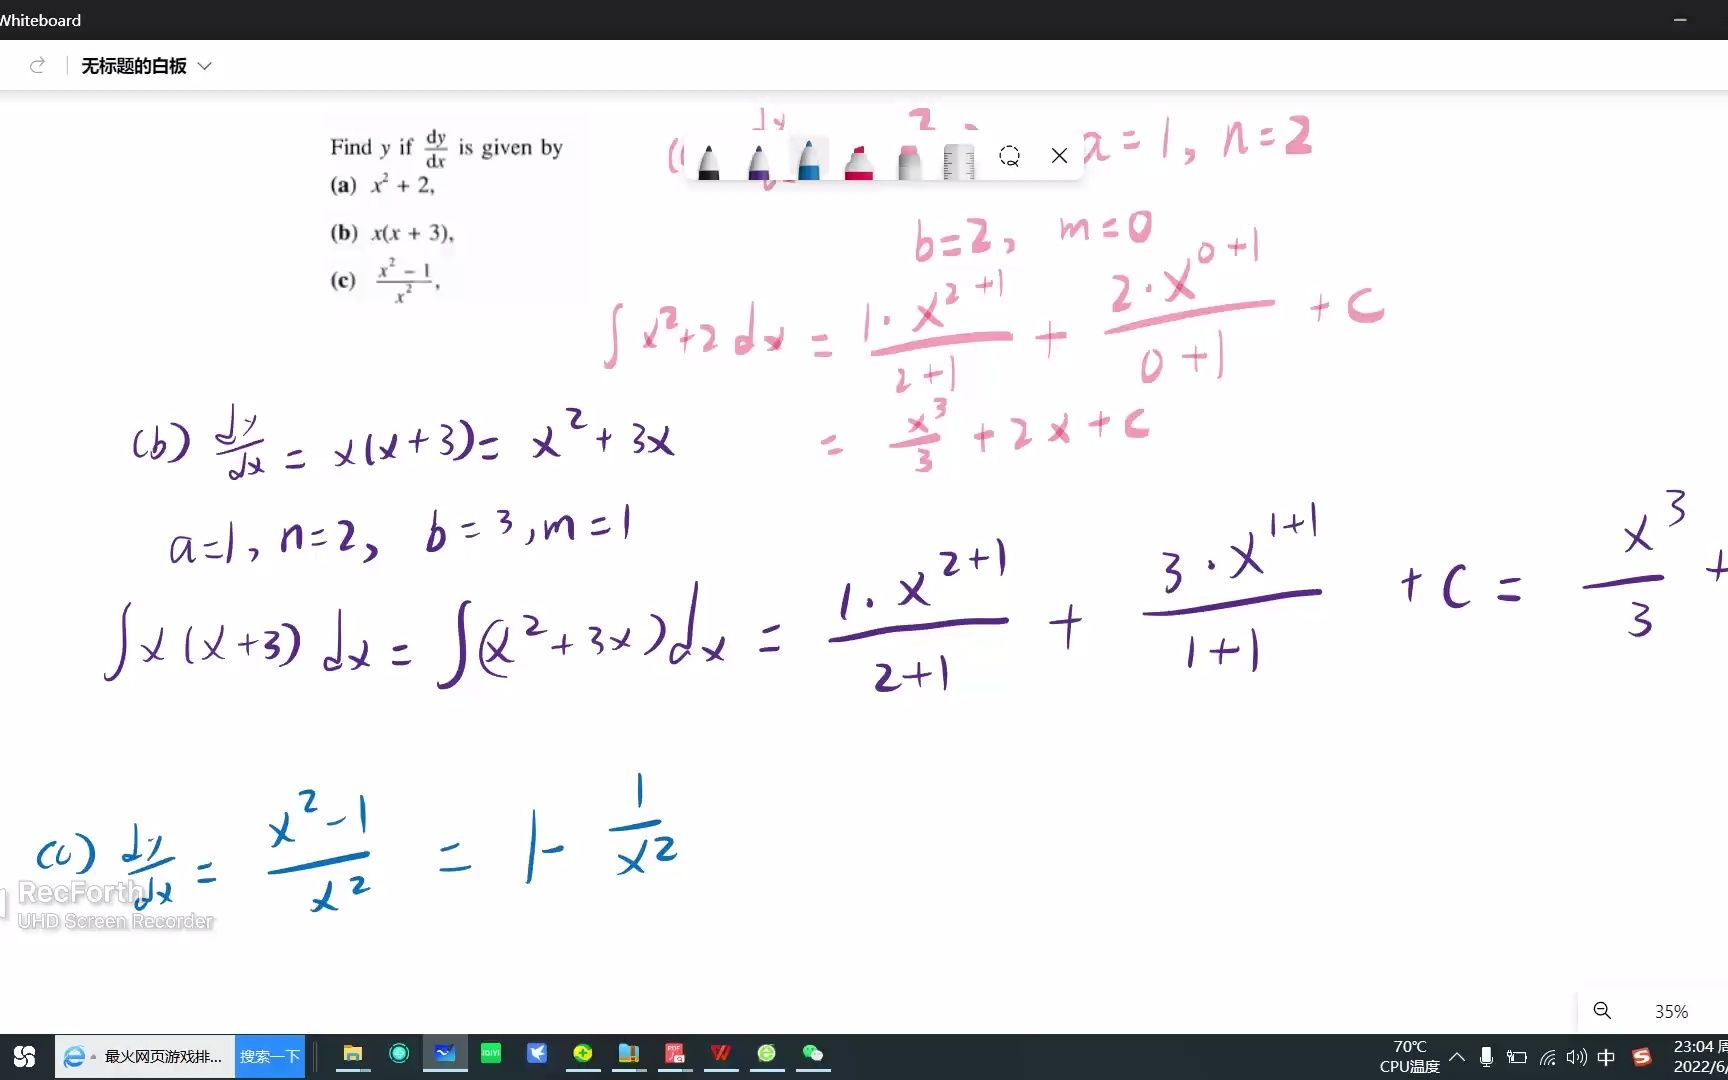 Whiteboard
无标题的白板
Find y if dy/dx is given by
(a) x² + 2,
(b) x(x + 3),
(c) (x² − 1)/x²,
a=1, n=2
b=2, m=0
∫x²+2 dx = (1·x²⁺¹)/(2+1) + (2·x⁰⁺¹)/(0+1) + C
= x³/3 + 2x + C
(b) dy/dx = x(x+3) = x² + 3x
a=1, n=2, b=3, m=1
∫x(x+3) dx = ∫(x²+3x)dx = (1·x²⁺¹)/(2+1) + (3·x¹⁺¹)/(1+1) + C = x³/3 +
(c) dy/dx = (x²-1)/x² = 1 - 1/x²
RecForth
UHD Screen Recorder
35%
最火网页游戏排...
搜索一下
70℃
CPU温度
中
23:04
2022/6/